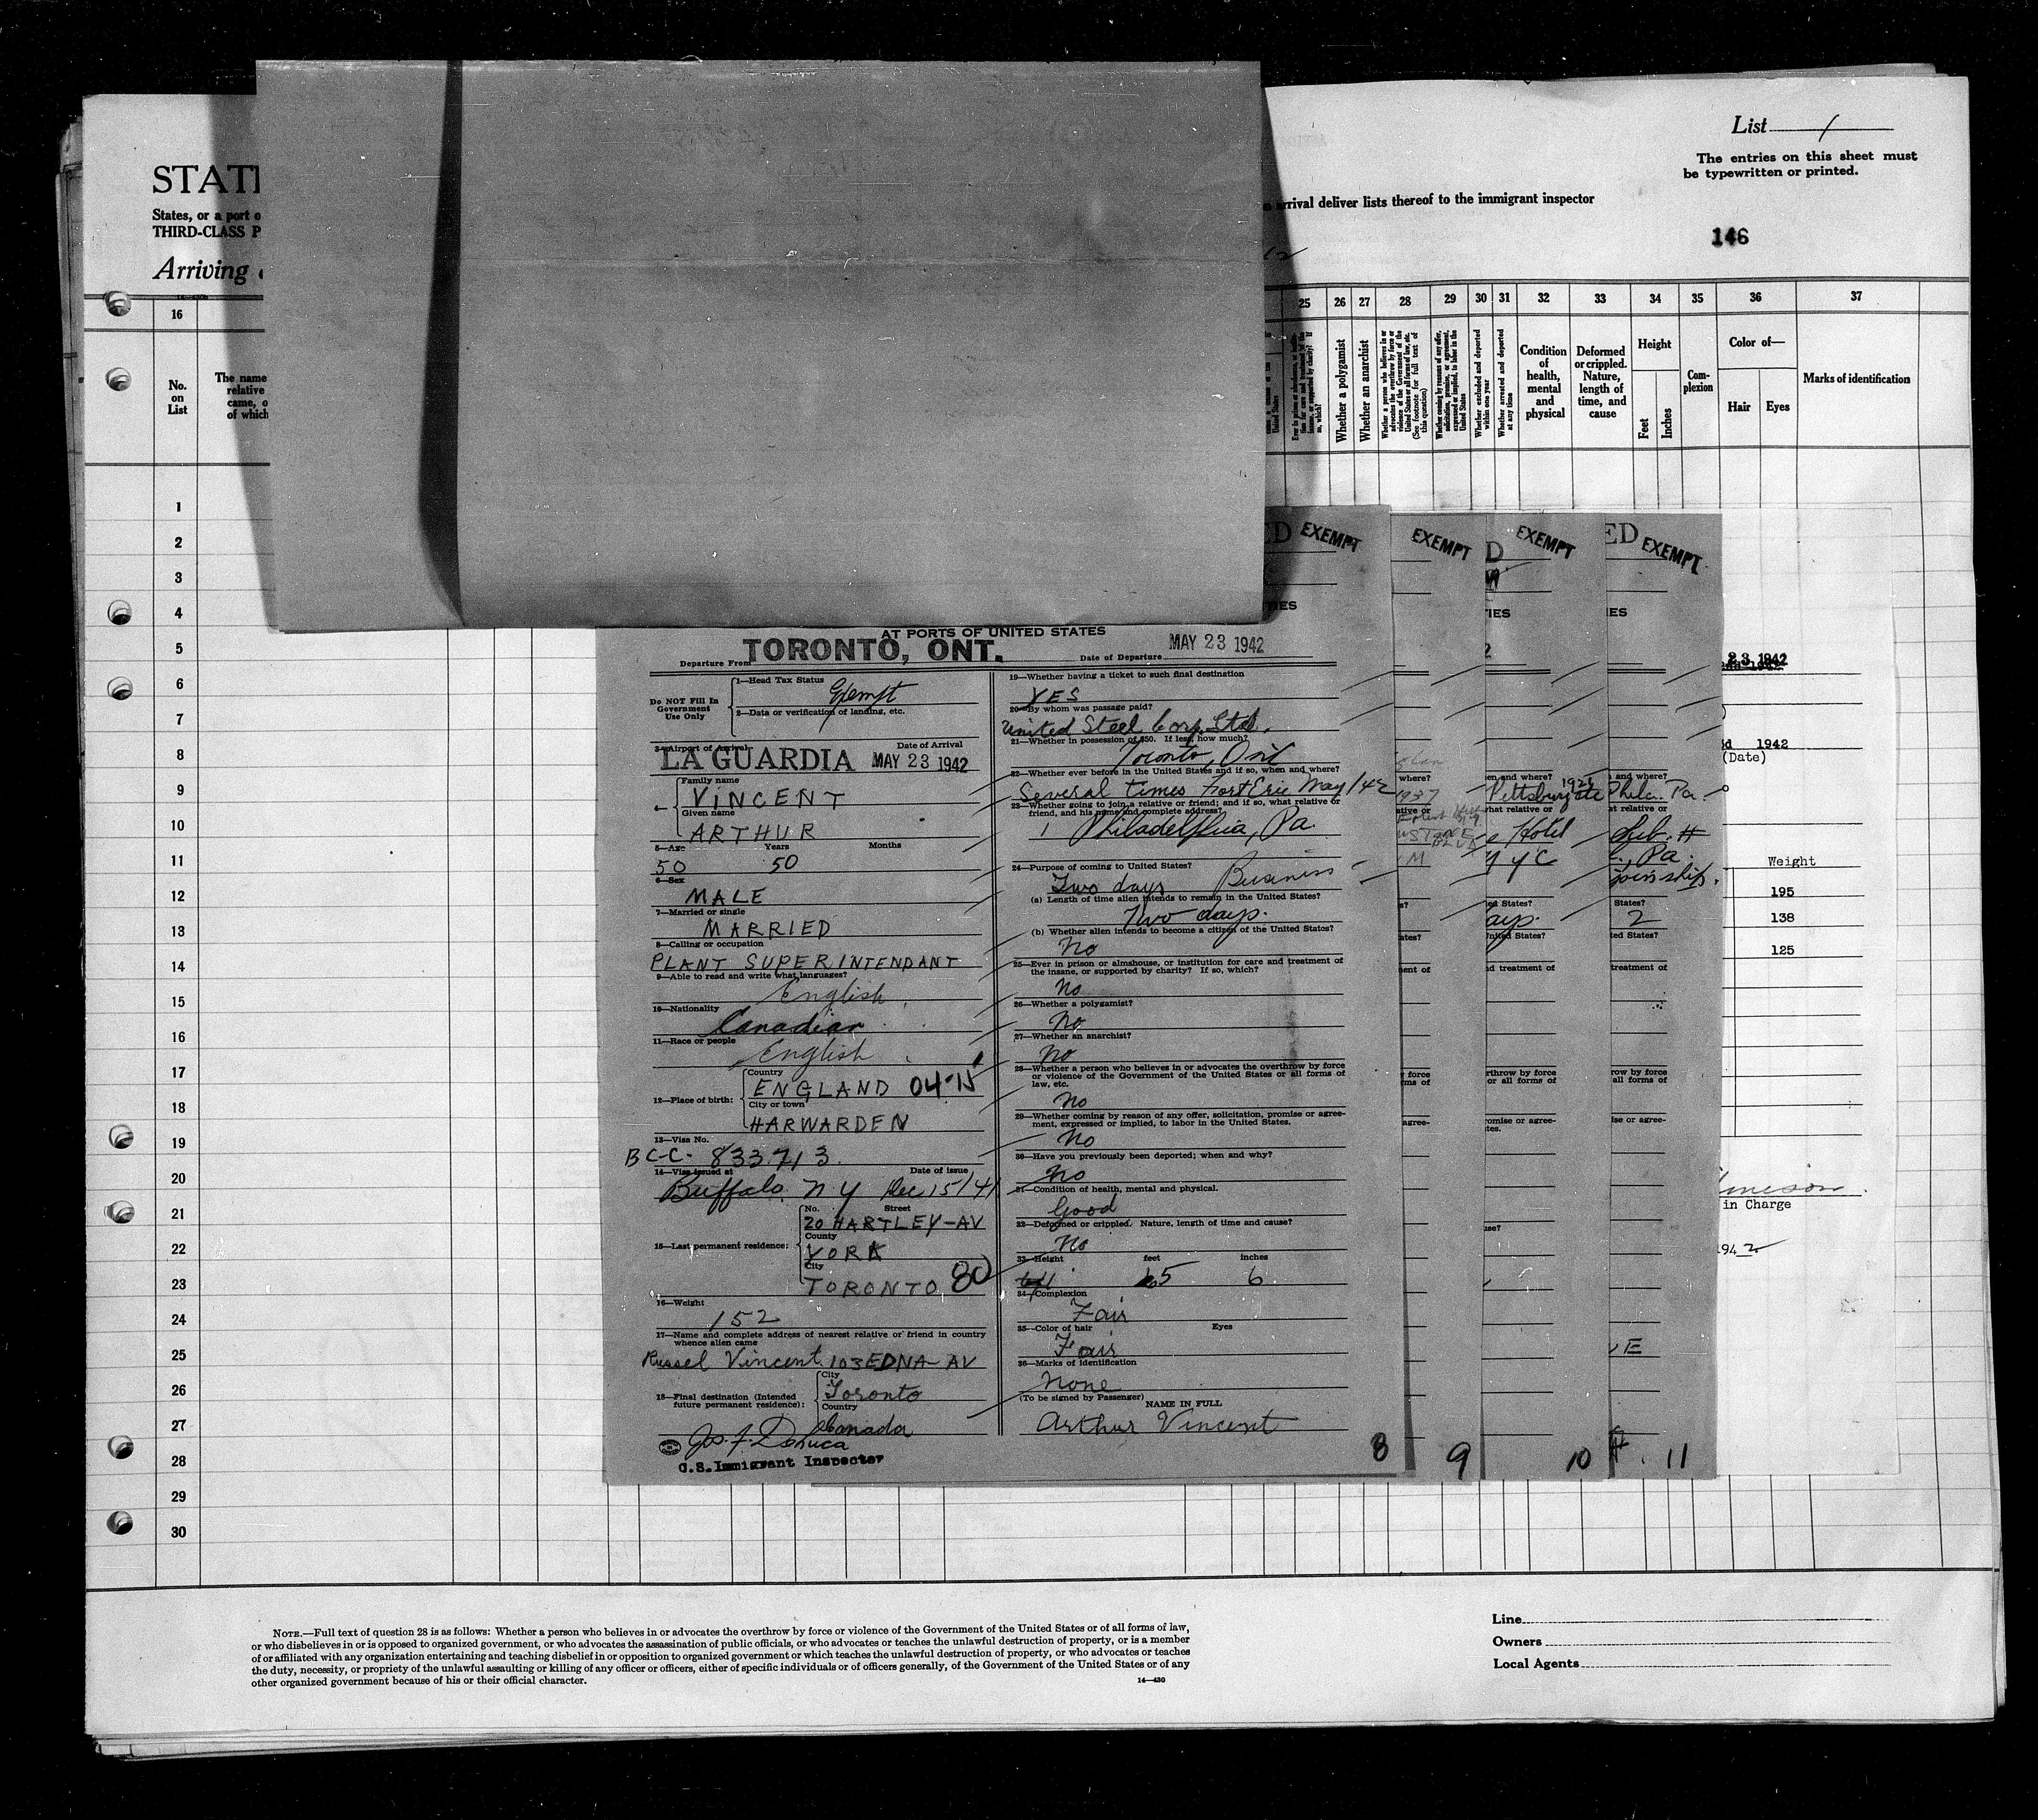 List 1
The entries on this sheet must
be typewritten or printed.
STATE
States, or a port o
THIRD-CLASS P
arrival deliver lists thereof to the immigrant inspector
146
Arriving
16 25 26 27 28 29 30 31 32 33 34 35 36 37
No.
on
List
The name
relative
came, o
of which
Whether a polygamist
Whether an anarchist
Whether a person who believes in or
advocates the overthrow by force or
violence of the Government of the
United States or all forms of law, etc.
(See footnote for full text of
this question)
Whether coming by reason of any offer,
solicitation, promise, or agreement,
expressed or implied, to labor in the
United States
Whether excluded and deported
within one year
Whether arrested and deported
at any time
Condition
of
health,
mental
and
physical
Deformed
or crippled.
Nature,
length of
time, and
cause
Height
Feet
Inches
Com-
plexion
Color of—
Hair
Eyes
Marks of identification
1
2
3
4
5
6
7
8
9
10
11
12
13
14
15
16
17
18
19
20
21
22
23
24
25
26
27
28
29
30
ED EXEMPT
TIES
AT PORTS OF UNITED STATES
Departure From TORONTO, ONT.
Date of Departure MAY 23 1942
Do NOT Fill In
Government
Use Only
1—Head Tax Status
Exempt
2—Data or verification of landing, etc.
3—Airport of Arrival
Date of Arrival
LA GUARDIA MAY 23 1942
4—
Family name
VINCENT
Given name
ARTHUR
5—Age Years Months
50 50
6—Sex
MALE
7—Married or single
MARRIED
8—Calling or occupation
PLANT SUPERINTENDANT
9—Able to read and write what languages?
English
10—Nationality
Canadian
11—Race or people
English
12—Place of birth:
Country
ENGLAND 04-15
City or town
HARWARDEN
13—Visa No.
B C-C- 833713
14—Visa issued at Date of issue
Buffalo N Y Dec 15/41
15—Last permanent residence:
No. Street
20 HARTLEY-AV
County
YORK
City
TORONTO 80
16—Weight
152
17—Name and complete address of nearest relative or friend in country
whence alien came
Russel Vincent 103 EDNA-AV
18—Final destination (Intended
future permanent residence):
City
Toronto
Country
Canada
U.S. Immigrant Inspector
19—Whether having a ticket to such final destination
YES
20—By whom was passage paid?
United Steel Corp. Ltd.
21—Whether in possession of $50. If less, how much?
Toronto, Ont
22—Whether ever before in the United States and if so, when and where?
Several times Fort Erie May/42
23—Whether going to join a relative or friend; and if so, what relative or
friend, and his name and complete address?
Philadelphia, Pa.
24—Purpose of coming to United States?
Two days Business
(a) Length of time alien intends to remain in the United States?
Two days.
(b) Whether alien intends to become a citizen of the United States?
No
25—Ever in prison or almshouse, or institution for care and treatment of
the insane, or supported by charity? If so, which?
No
26—Whether a polygamist?
No
27—Whether an anarchist?
No
28—Whether a person who believes in or advocates the overthrow by force
or violence of the Government of the United States or all forms of
law, etc.
No
29—Whether coming by reason of any offer, solicitation, promise or agree-
ment, expressed or implied, to labor in the United States.
No
30—Have you previously been deported; when and why?
No
31—Condition of health, mental and physical.
Good
32—Deformed or crippled. Nature, length of time and cause?
No
33—Height feet inches
5 6
34—Complexion
Fair
35—Color of hair Eyes
Fair
36—Marks of identification
None
(To be signed by Passenger)
NAME IN FULL
Arthur Vincent
8
EXEMPT
where?
1937
9
D EXEMPT
TIES
2
en and where?
Pittsburg
what relative or
Hotel
N Y C
ted States?
ays.
United States?
nd treatment of
rthrow by force
or all forms of
romise or agree-
10
ED EXEMPT
IES
and where?
Phila. Pa.
at relative or
Pa.
join ship.
States?
2
ted States?
treatment of
row by force
all forms of
ise or agree-
11
23 1942
1942
(Date)
Weight
195
138
125
in Charge
1942
NOTE.—Full text of question 28 is as follows: Whether a person who believes in or advocates the overthrow by force or violence of the Government of the United States or of all forms of law,
or who disbelieves in or is opposed to organized government, or who advocates the assassination of public officials, or who advocates or teaches the unlawful destruction of property, or is a member
of or affiliated with any organization entertaining and teaching disbelief in or opposition to organized government or which teaches the unlawful destruction of property, or who advocates or teaches
the duty, necessity, or propriety of the unlawful assaulting or killing of any officer or officers, either of specific individuals or of officers generally, of the Government of the United States or of any
other organized government because of his or their official character.
14—430
Line
Owners
Local Agents